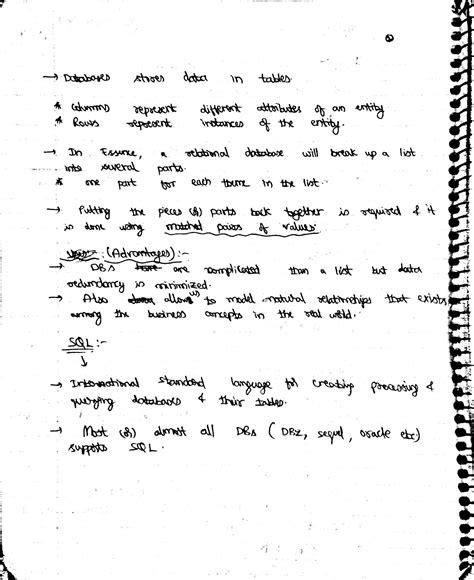 → Databases stores data in tables
* Columns represent different attributes of an entity
* Rows represent instances of the entity.
→ In Essence, a relational database will break up a list
into several parts.
* one part for each theme in the list.
→ Putting the pieces (or) parts back together is required & it
is done using matched pairs of values
(Advantages):-
→ DBs are complicated than a list but data
redundancy is minimized.
→ Also allows to model natural relationships that exists
among the business concepts in the real world.
SQL:-
↓
→ International standard language for creating processing &
querying databases & their tables.
→ Most (or) almost all DBs (DB2, sequel, oracle etc)
supports SQL.